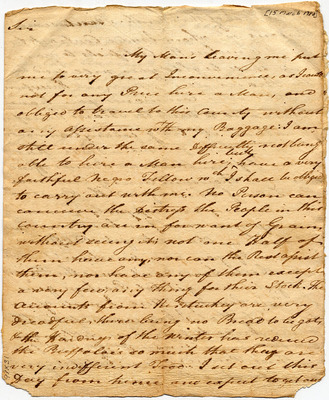 [15 March 1780]
Sir
My Man's leaving me put
me to very great Inconvenience, as I could
not for any Price hire a Man, and
obliged to travel to this County without
any Assistance with my Baggage I am
still under the same Difficulty not being
able to hire a Man here, have a very
faithful Negro Fellow wch I shall be obliged
to carry out with me. No Person can
conceive the Distress the People in this
Country are in for want of Grain,
without seeing it: not one half of
them have any, nor can the Rest assist
them, nor have any of them except
a very few, any thing for their Stock. The
Accounts from Kentuckey are very
Dreadful, there being no Bread to be got
& the Hardness of the Winter has reduced
the Buffaloes so much that they are
very indifferent Food. I set out this
Day from home and expect to